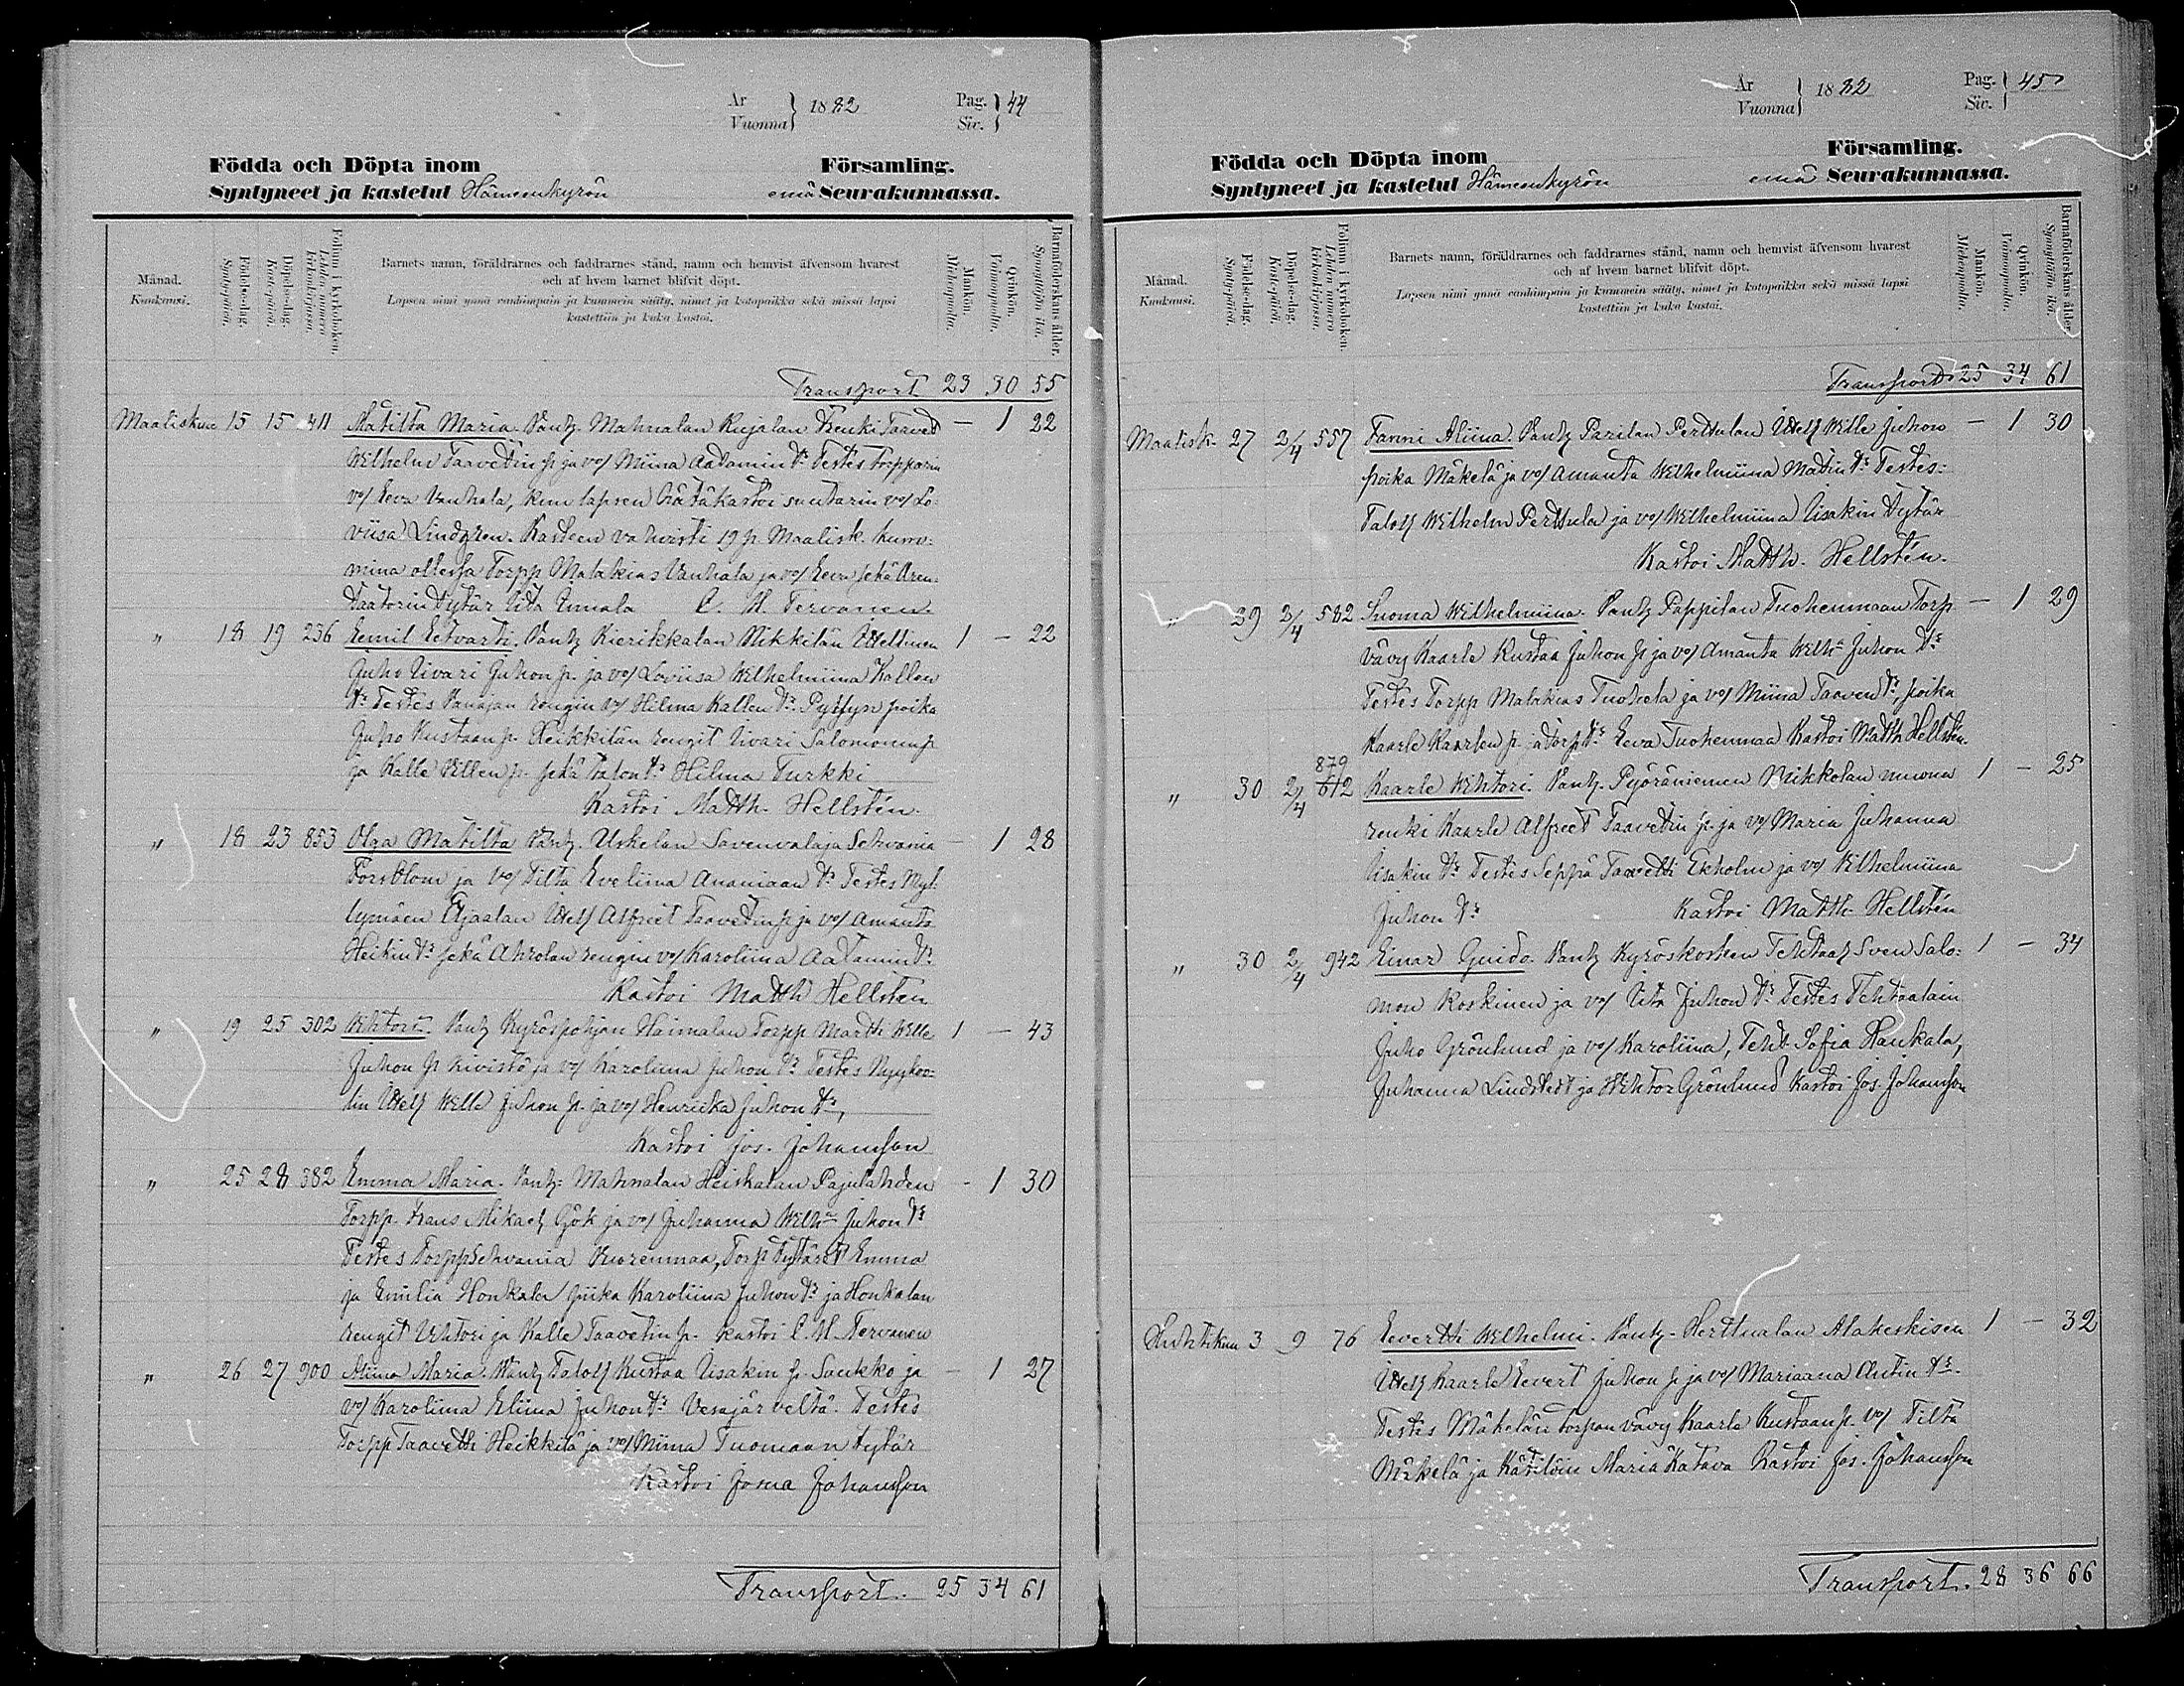 År
Vuonna } 1882 Pag.
Siv. } 44
Födda och Döpta inom Församling.
Syntyneet ja kastetut Hämeenkyrön emä Seurakunnassa.
Månad.
Kuukausi.
Födelse-dag.
Synty-päivä.
Döpelse-dag.
Kaste-päivä.
Folium i kyrkoboken.
Lehden numero kirkonkirjassa.
Barnets namn, föräldrarnes och faddrarnes stånd, namn och hemvist äfvensom hvarest
och af hvem barnet blifvit döpt.
Lapsen nimi ynnä vanhimpain ja kummein sääty, nimet ja kotopaikka sekä missä lapsi
kastettiin ja kuka kastoi.
Mankön.
Miehenpuolia.
Qvinkön.
Vaimonpuolia.
Barnaföderskans ålder.
Synnyttäjän ikä.
Transport 23 30 55
Maaliskuu 15 15 411 Matilta Maria. Vanh. Mahnalan Kujalan Renki Taavet — 1 22
Wilhelm Taavetin p. ja vo/ Miina Aatamin tr. Testes Torpparin
vo/ Eeva Vanhala, kun lapsen hätäkastoi suntarin vo/ Lo-
viisa Lindgren. Kasteen vahvisti 19 p. Maalisk. kum-
mina ollessa Torpp Malakias Vanhala ja vo/ Eeva sekä Aren-
taatorin tytär Iita Uumala C. M. Tervonen.
" 18 19 236 Eemil Eetvarti. Vanh Kierikkalan Nikkilän Itsellinen 1 — 22
Juho Iivari Juhon p. ja vo/ Loviisa Wilhelmiina Kallen
tr. Testes Vanajan rengin vo/ Hilma Kallen tr. Pyssyn poika
Juho Kustaan p. Heikkilän rengit Iivari Salomonin p
ja Kalle Villen p. sekä talon tr Hilma Turkki
Kastoi Matth. Hellstén.
" 18 23 853 Olga Matilta Vanh. Uskelan Savenvalaja Sehvania — 1 28
Forsblom ja vo/ Tilta Eveliina Ananiaan tr Testes Myl-
lymäen Itsell Alfreet Taavetin p ja vo/ Amanta
Heikin tr sekä Ahrolan rengin vo/ Karoliina Aatamin tr
Kastoi Matth Hellstén
" 19 25 302 Vihtori. Vanh Kyröspohjan Haimalan Torpp Martti Wille 1 — 43
Juhon p Kivistö ja vo/ Karoliina Juhon tr Testes
lin Itsell Wille Juhon p. ja vo/ Henriika Juhon tr,
Kastoi Jos. Johansson
" 25 28 382 Emma Maria. Vanh: Mahnalan Heiskalan Pajulahden - 1 30
Torpp. Frans Mikael Gök ja vo/ Juhanna Wilh:a Juhon tr
Testes Torpp Sehvania Vuorenmaa, Torp tyttäret Emma
ja Emilia Honkala piika Karoliina Juhon tr ja Honkalan
rengit Vihtori ja Kalle Taavetin p. kastoi C. M. Tervonen
" 26 27 900 Alma Maria. Vanh Talol/ Kustaa Iisakin p. Saukko ja — 1 27
vo/ Karoliina Eliina Juhon tr Vesajärveltä. Testes
Torpp Taavetti Heikkilä ja vo/ Miina Tuomaan tytär
Kastoi Josua Johansson
Transport. 25 34 61
År
Vuonna } 1882 Pag.
Siv. } 45
Födda och Döpta inom Församling.
Syntyneet ja kastetut Hämeenkyrön emä Seurakunnassa.
Månad.
Kuukausi.
Födelse-dag.
Synty-päivä.
Döpelse-dag.
Kaste-päivä.
Folium i kyrkoboken.
Lehden numero kirkonkirjassa.
Barnets namn, föräldrarnes och faddrarnes stånd, namn och hemvist äfvensom hvarest
och af hvem barnet blifvit döpt.
Lapsen nimi ynnä vanhimpain ja kummein sääty, nimet ja kotopaikka sekä missä lapsi
kastettiin ja kuka kastoi.
Mankön.
Miehenpuolia.
Qvinkön.
Vaimonpuolia.
Barnaföderskans ålder.
Synnyttäjän ikä.
Transport 25 34 61
Maalisk. 27 2/4 557 Fanni Aliina. Vanh Parilan Perttulan Itsell Wille Juhon — 1 30
poika Mäkelä ja vo/ Amanta Wilhelmiina Matin tr Testes:
Talol/ Wilhelm Perttula ja vo/ Wilhelmiina Iisakin tytär
Kastoi Matth. Hellstén.
" 29 2/4 582 Suoma Wilhelmiina. Vanh Pappilan Tuohenmaan Torp — 1 29
vävy Kaarle Kustaa Juhon p ja vo/ Amanta Wilh:a Juhon tr
Testes Torpp Malakias Tuohela ja vo/ Miina Taaven tr, poika
Kaarle Kaarlen p. ja Torp tr Eeva Tuohenmaa Kastoi Matth Hellstén.
" 30 2/4 879 612 Kaarle Vihtori. Vanh. Pyöräniemen Rikkolan muona 1 — 25
renki Kaarle Alfreet Taavetin p. ja vo/ Maria Juhanna
Iisakin tr Testes Seppä Taavetti Ekholm ja vo/ Vilhelmiina
Juhon tr Kastoi Matth. Hellstén
" 30 2/4 942 Einar Guido. Vanh Kyröskosken Tehtaal Sven Salo- 1 — 34
mon Koskinen ja vo/ Iita Juhon tr Testes Tehtaalain
Juho Grönlund ja vo/ Karoliina, Teht. Sofia Haukala,
Juhanna Lindstedt ja Vihtor Grönlund Kastoi Jos. Johansson
Huhtikuu 3 9 76 Eevertti Wilhelmi. Vanh. Herttualan Alakeskisen 1 — 32
Itsell Kaarle Eevert Juhon p ja vo/ Mariaana Antin tr.
Testes Mäkelän torpan vävy Kaarle Kustaan p. vo/ Tilta
Mäkelä ja Kätilöin Maria Katava Kastoi Jos. Johansson
Transport. 28 36 66